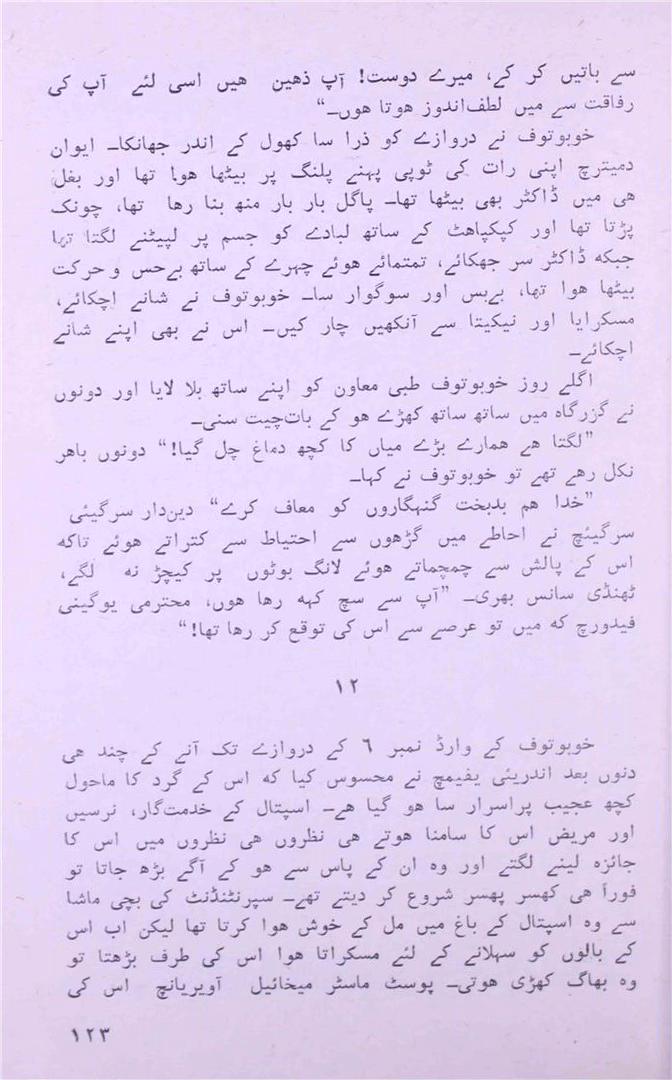 سے باتیں کر کے، میرے دوست! آپ ذھین ھیں اسی لئے آپ کی
رفاقت سے میں لطف‌اندوز ھوتا ھوں۔“
خوبوتوف نے دروازے کو ذرا سا کھول کے اندر جھانکا۔ ایوان
دمیترچ اپنی رات کی ٹوپی پہنے پلنگ پر بیٹھا ھوا تھا اور بغل
ھی میں ڈاکٹر بھی بیٹھا تھا۔ پاگل بار بار منھ بنا رھا تھا، چونک
پڑتا تھا اور کپکپاھٹ کے ساتھ لبادے کو جسم پر لپیٹنے لگتا تھا
جبکہ ڈاکٹر سر جھکائے، تمتمائے ھوئے چہرے کے ساتھ بےحس و حرکت
بیٹھا ھوا تھا، بےبس اور سوگوار سا۔ خوبوتوف نے شانے اچکائے،
مسکرایا اور نیکیتا سے آنکھیں چار کیں۔ اس نے بھی اپنے شانے
اچکائے۔
اگلے روز خوبوتوف طبی معاون کو اپنے ساتھ بلا لایا اور دونوں
نے گزرگاہ میں ساتھ ساتھ کھڑے ھو کے بات‌چیت سنی۔
”لگتا ھے ھمارے بڑے میاں کا کچھ دماغ چل گیا!“ دونوں باھر
نکل رھے تھے تو خوبوتوف نے کہا۔
”خدا ھم بدبخت گنہگاروں کو معاف کرے“ دین‌دار سرگیئی
سرگیئچ نے احاطے میں گڑھوں سے احتیاط سے کتراتے ھوئے تاکہ
اس کے پالش سے چمچماتے ھوئے لانگ بوٹوں پر کیچڑ نہ لگے،
ٹھنڈی سانس بھری۔ ”آپ سے سچ کہہ رھا ھوں، محترمی یوگینی
فیدورچ کہ میں تو عرصے سے اس کی توقع کر رھا تھا!“
۱۲
خوبوتوف کے وارڈ نمبر ۶ کے دروازے تک آنے کے چند ھی
دنوں بعد اندریئی یفیمچ نے محسوس کیا کہ اس کے گرد کا ماحول
کچھ عجیب پراسرار سا ھو گیا ھے۔ اسپتال کے خدمت‌گار، نرسیں
اور مریض اس کا سامنا ھوتے ھی نظروں ھی نظروں میں اس کا
جائزہ لینے لگتے اور وہ ان کے پاس سے ھو کے آگے بڑھ جاتا تو
فوراً ھی کھسر پھسر شروع کر دیتے تھے۔ سپرنٹنڈنٹ کی بچی ماشا
سے وہ اسپتال کے باغ میں مل کے خوش ھوا کرتا تھا لیکن اب اس
کے بالوں کو سہلانے کے لئے مسکراتا ھوا اس کی طرف بڑھتا تو
وہ بھاگ کھڑی ھوتی۔ پوسٹ ماسٹر میخائیل آویریانچ اس کی
۱۲۳